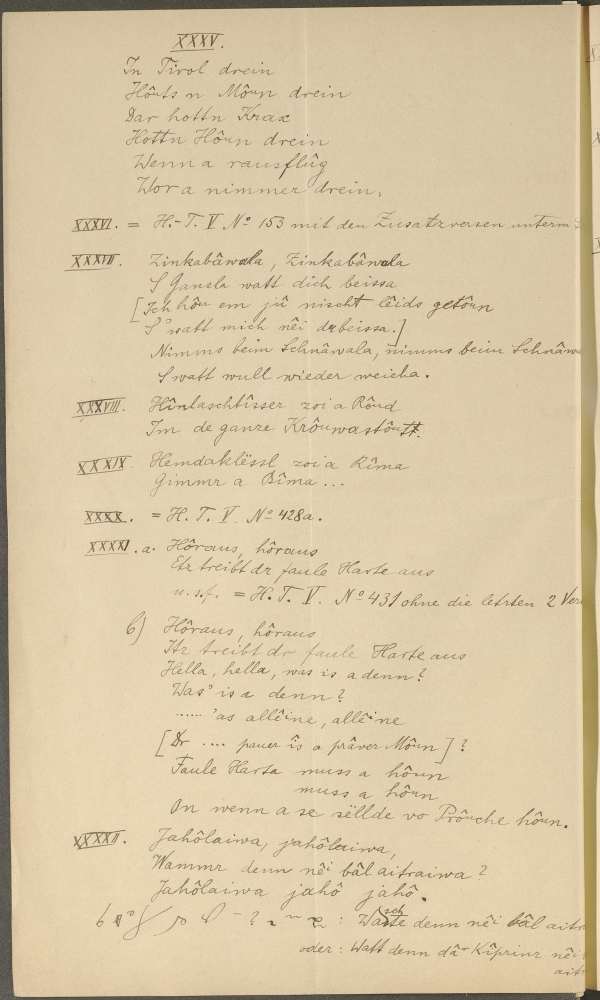 XXXV.
In Tirol drein
Hôuts n Môun drein
Dar hottn Krax
Hottn Hôun drein
Wenn a rausflûg
Wor a nimmer drein.
XXXVI. = H.-T. V No 153 mit den Zusatzversen unterm
XXXVII. Zinkabâwala, Zinkabâwala
S Gansla watt dich beissa
[Ich hôu em jû nischt lêids getôun
S' watt mich nêi drbeissa.]
Nimms beim Schnâwala, nimms beim Schnâwa
S watt wull wieder weicha.
XXXVIII. Hinlaschtîsser zoi a Rôud
Im de ganze Krôuwastôutt.
XXXIX. Hemdaklëssl zoi a Rîma
Gimmr a Bîma ...
XXXX. = H. T. V. No 428a.
XXXXI. a. Hôraus, hôraus
Etz treibt dr faule Harte aus
u. s. f. = H. T. V. No 431 ohne die letzten 2 Ver
b) Hôraus, hôraus
Itz treibt dr faule Harte aus
Hella, hella, was is a denn?
Was' is a denn?
...... 'as allêine, allêine
[Dr .... pauer îs a prâver Môun]?
Faule Harta muss a hôun
muss a hôun
On wenn a se sëllde vo Prôuche hôun.
XXXXII. Jahôlaiwa, jahôlaiwa,
Wammr denn nêi bâl aitraiwa?
Jahôlaiwa jahô jahô.
: denn nêi bâl aitr
oder: Watt denn dâr Kîprinz nêi
ait